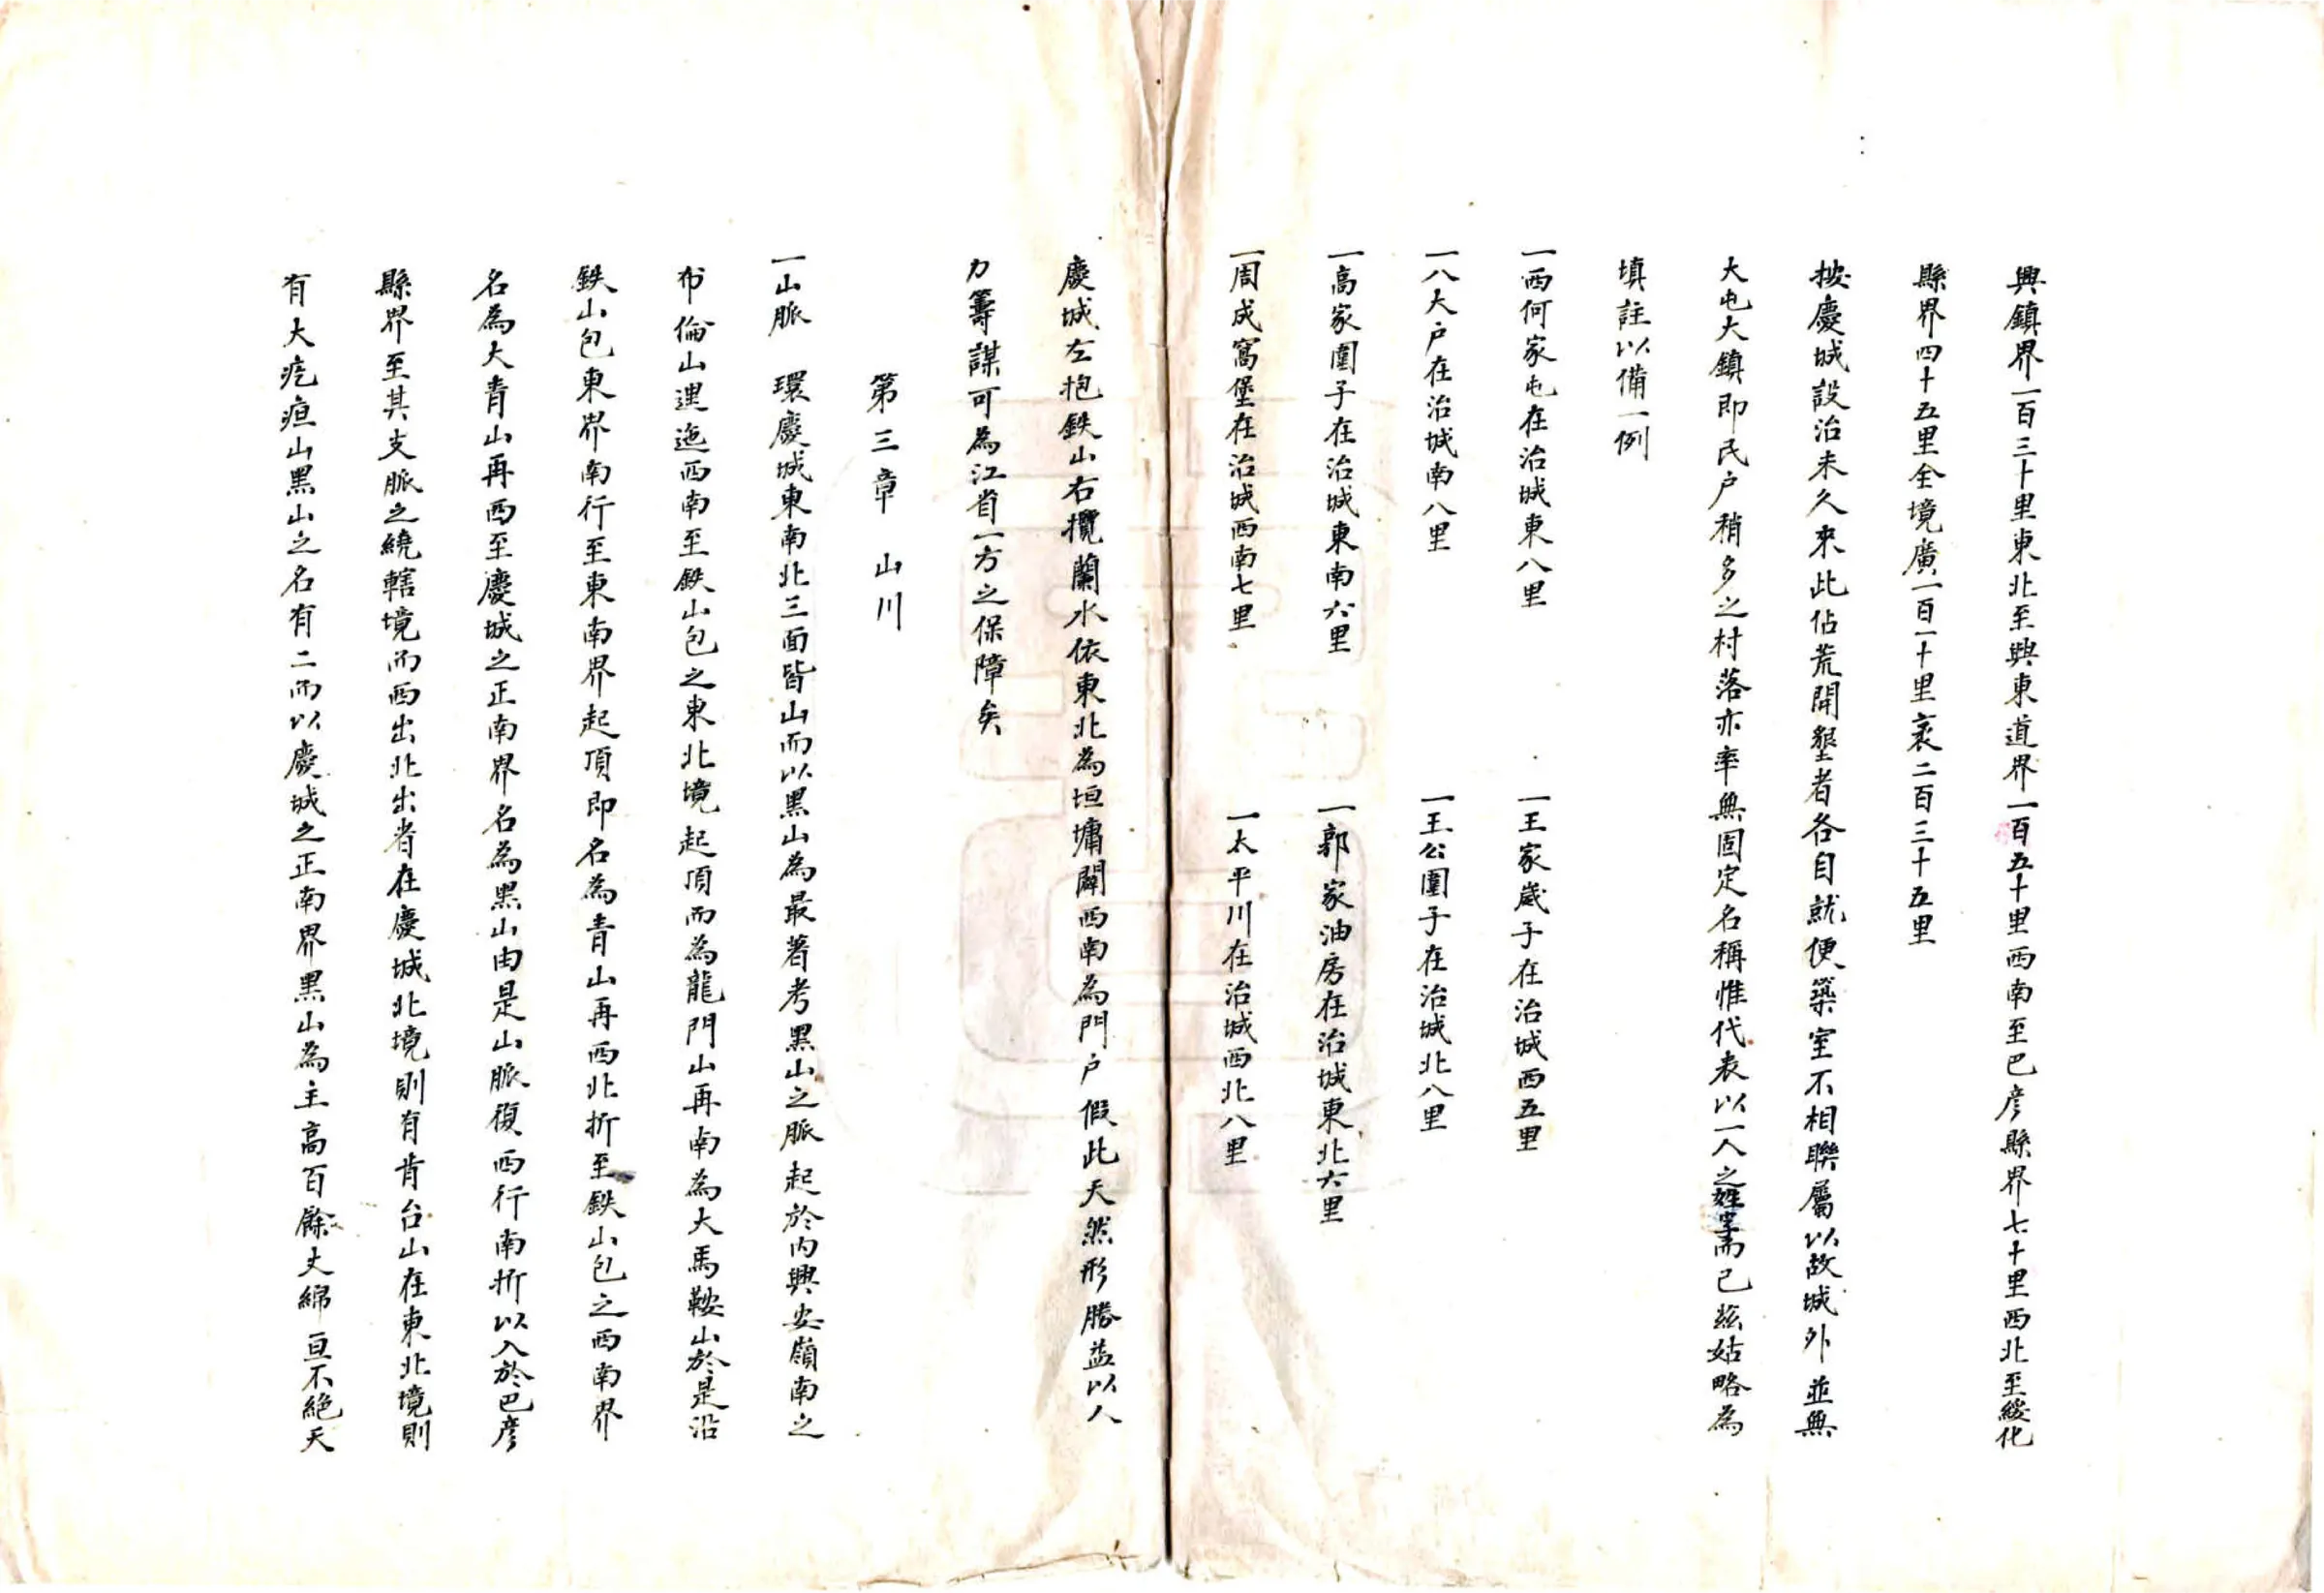 興鎮界一百三十里東北至興東道界一百五十里西南至巴彦縣界七十里西北至綏化
縣界四十五里全境廣一百一十里袤二百三十五里
按慶城設治未久來此佔荒開墾者各自就便築室不相聯屬以故城外並無
大屯大鎮即民户稍多之村落亦率無固定名稱惟代表以一人之姓字而已兹姑略為
填註以備一例
一西何家屯在治城東八里
一王家崴子在治城西五里
一八大户在治城南八里
一王公圍子在治城北八里
一高家圍子在治城東南六里
一郭家油房在治城東北六里
一周成窩堡在治城西南七里
一太平川在治城西北八里
慶城左抱鉄山右攬蘭水依東北為垣墉闢西南為門户假此天然形勝益以人
力籌謀可為江省一方之保障矣
第三章 山川
一山脈 環慶城東南北三面皆山而以黑山為最著考黑山之脈起於内興安嶺南之
布倫山邐迤西南至鉄山包之東北境起頂而為龍門山再南為大馬鞍山於是沿
鉄山包東界南行至東南界起頂即名為青山再西北折至鉄山包之西南界
名為大青山再西至慶城之正南界名為黑山由是山脈復西行南折以入於巴彦
縣界至其支脈之繞轄境而西出北出者在慶城北境則有肯台山在東北境則
有大疙疸山黑山之名有二而以慶城之正南界黑山為主高百餘丈綿亘不絶天